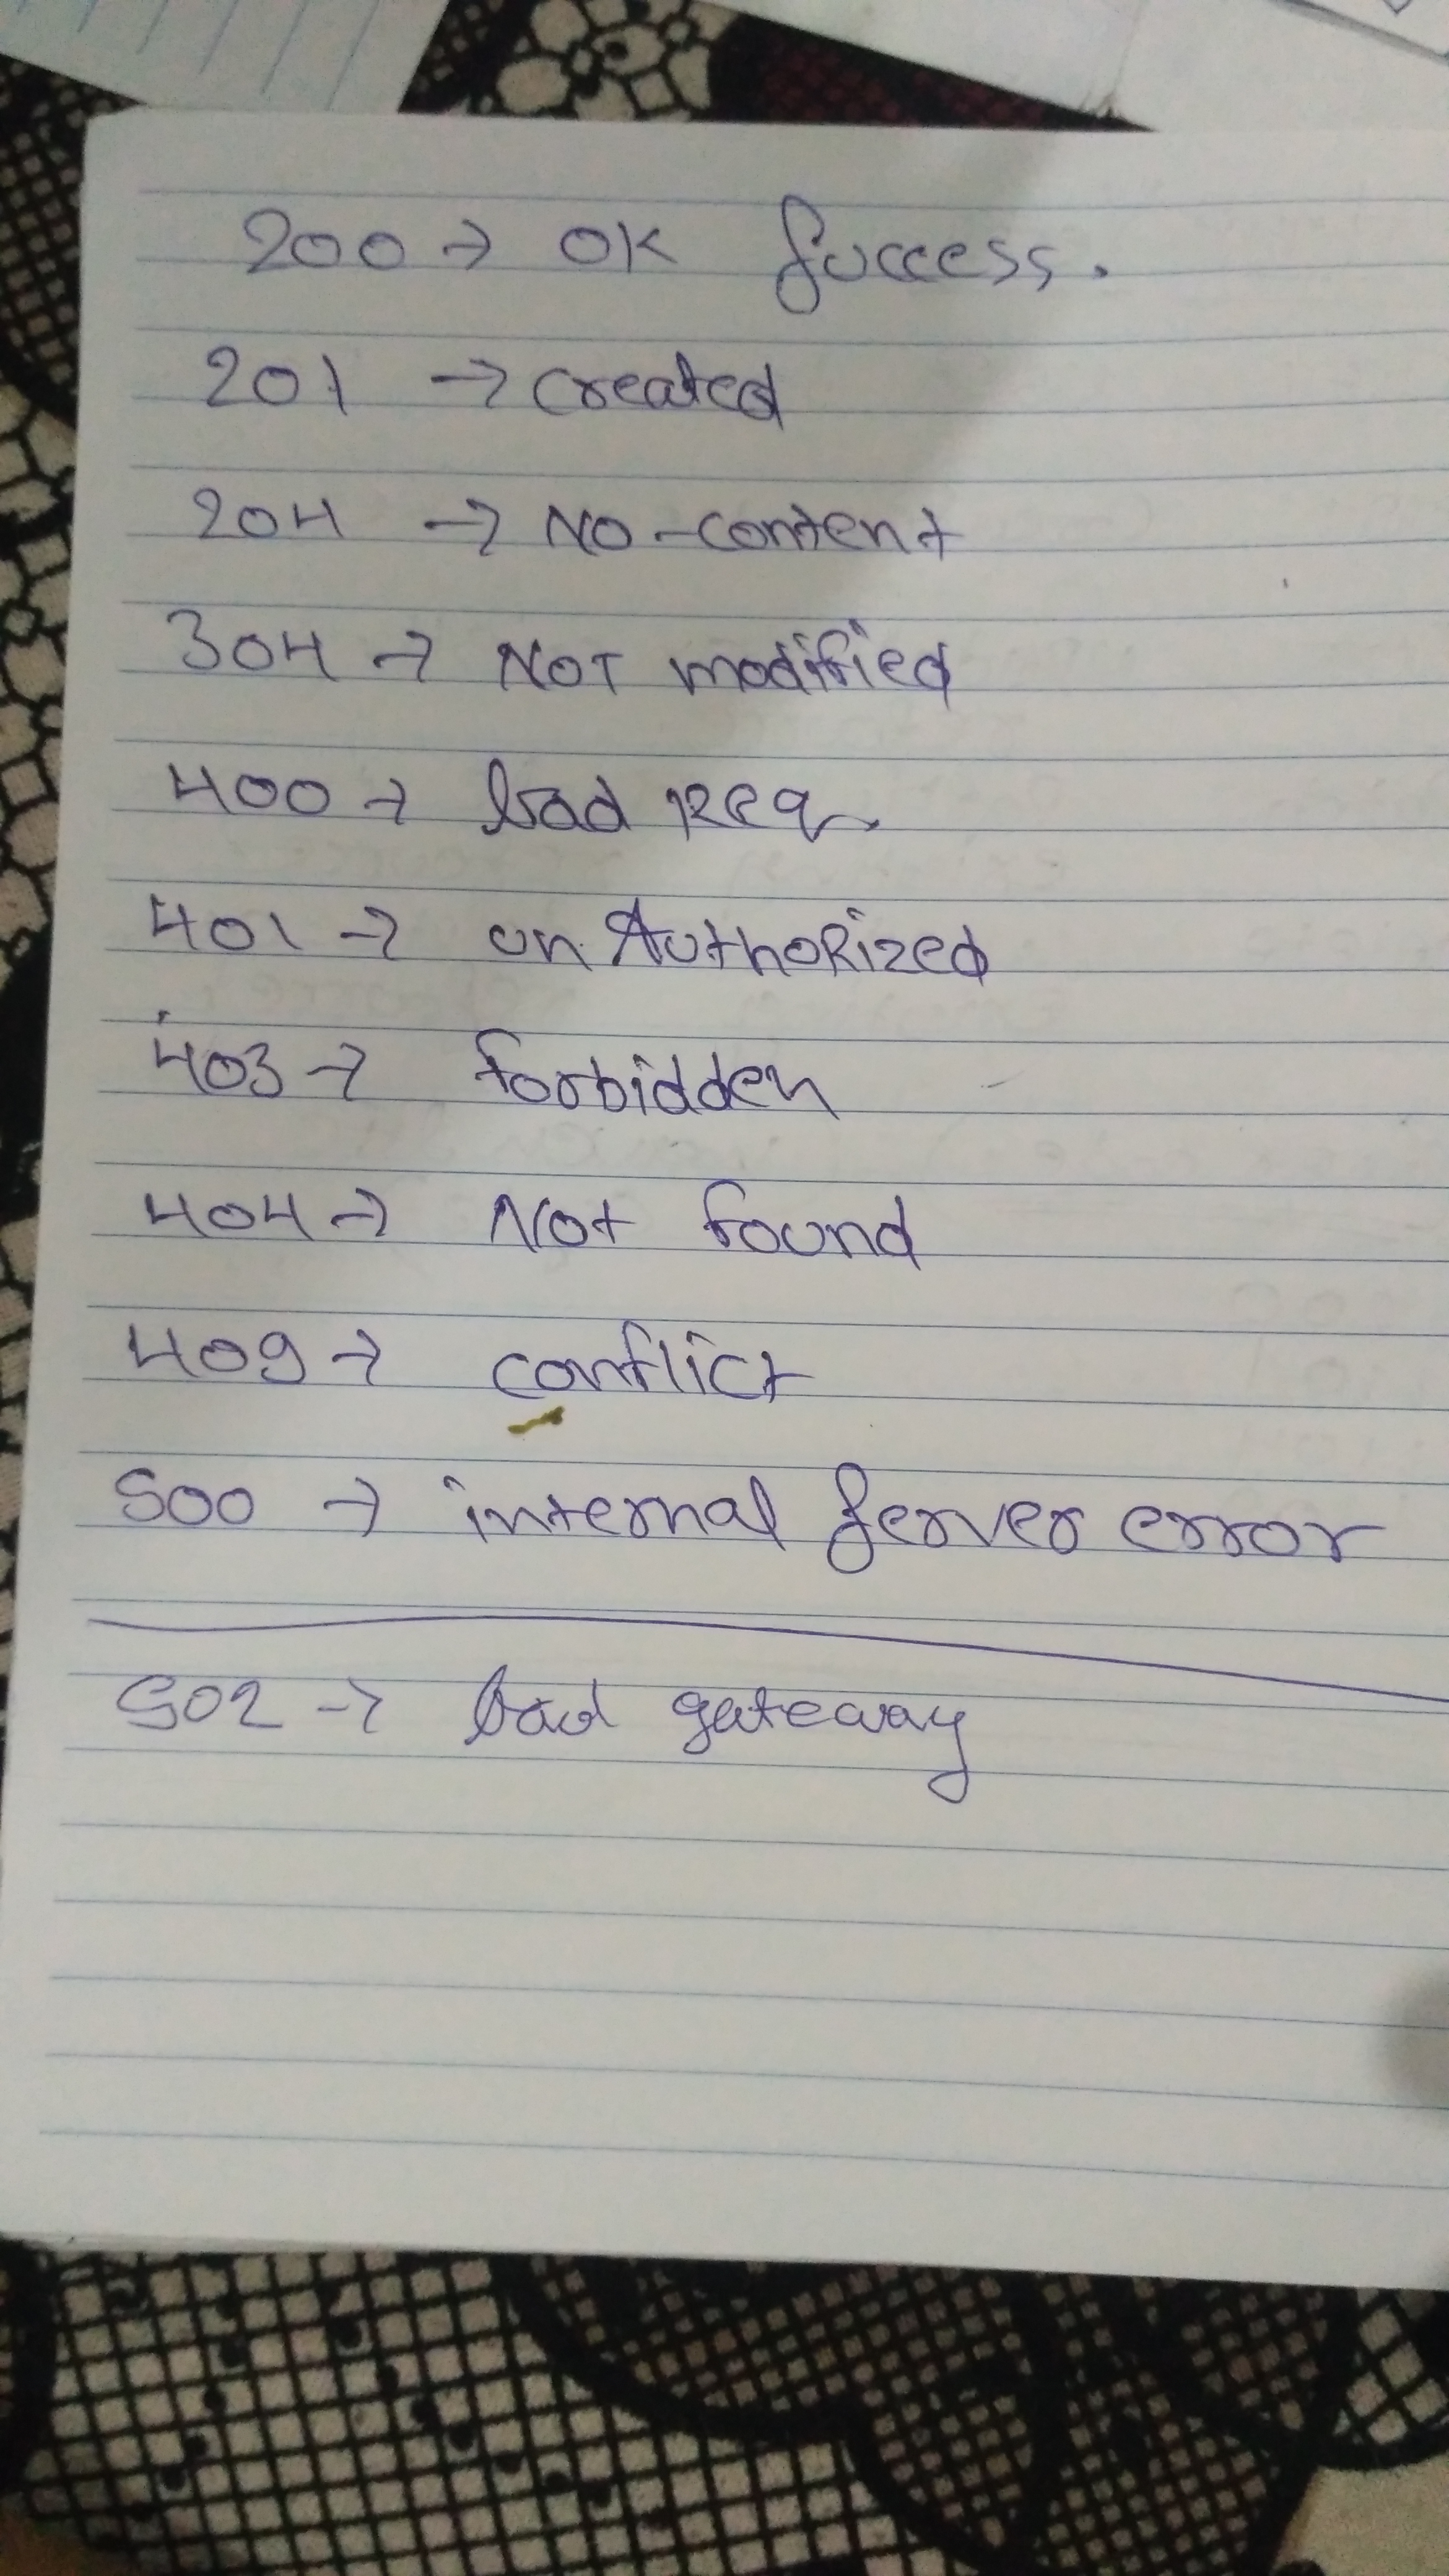 200 → OK Success.
201 → created
204 → NO-content
304 → NOT modified
400 → bad Req.
401 → un Authorized
403 → forbidden
404 → Not found
409 → conflict
500 → internal server error
502 → bad gateway